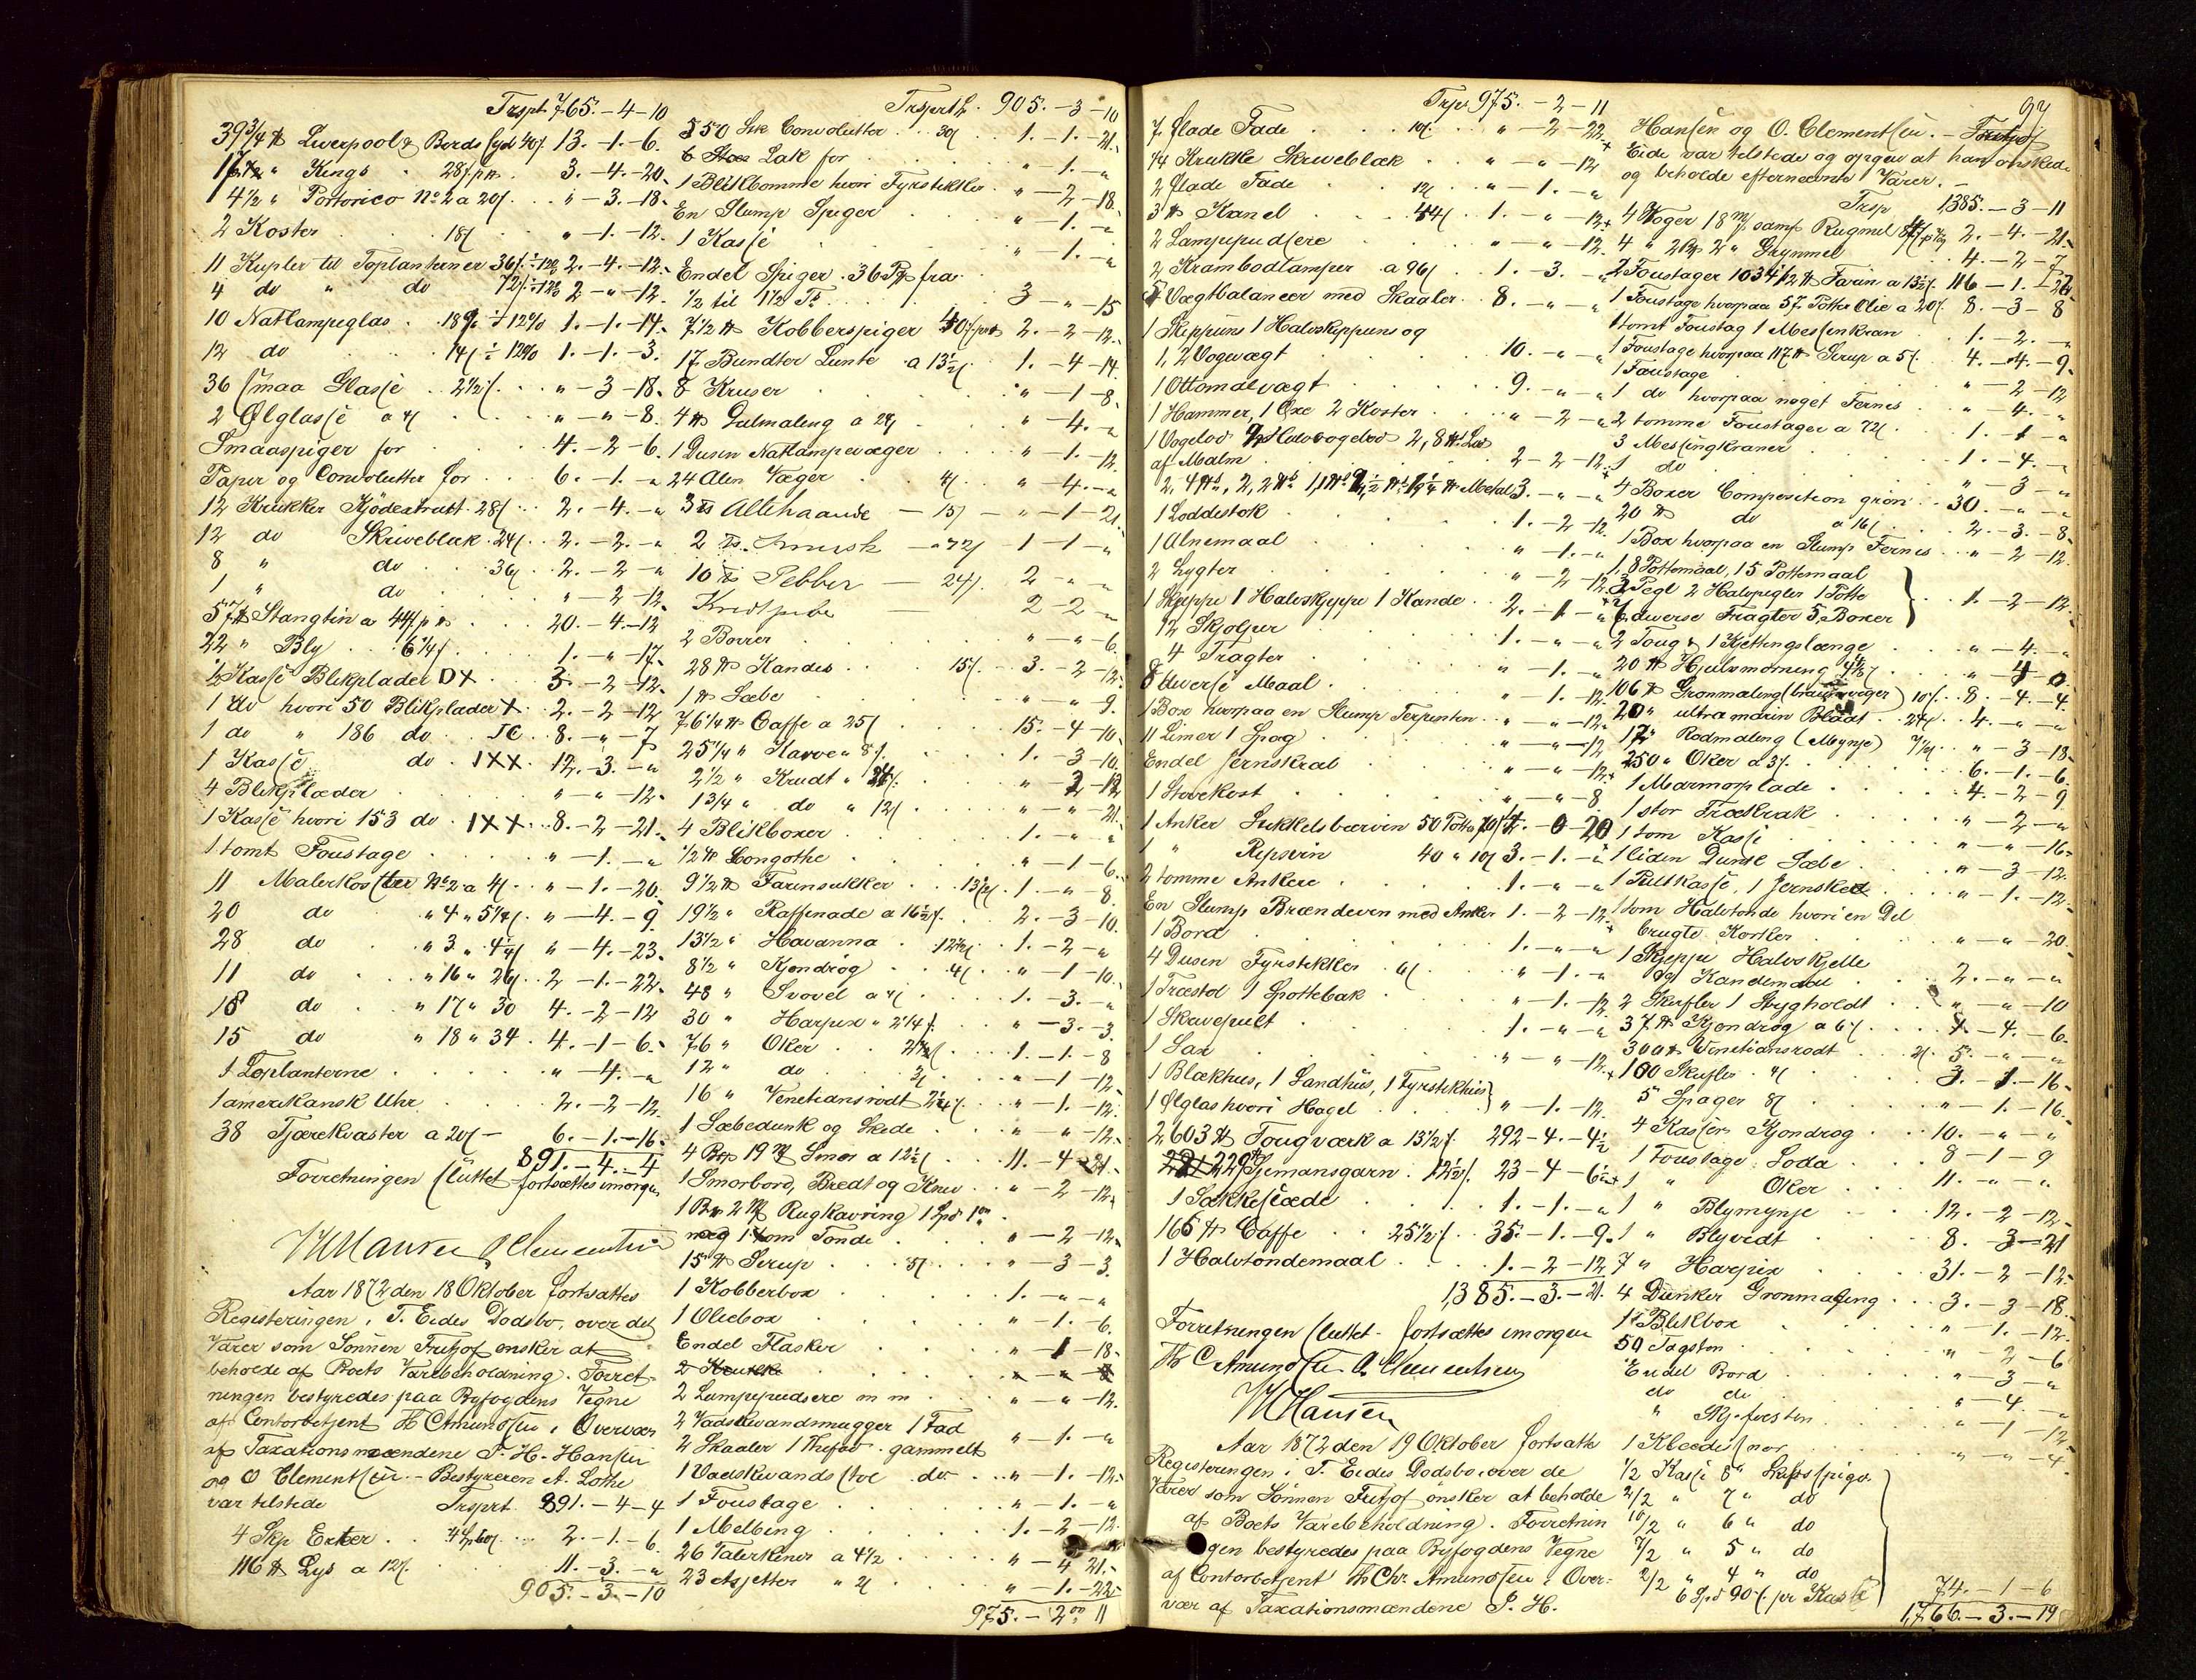 Trsprt 765.-4-10
39 3/4 ℔ Liverpool & Bords Lys 40/ 13.-1.-6.
" Kings . 28/ p ℔ . 3.-4.-20.
4 1/2 " Portorico No 2 a 20/ . . " -3.-18.
2 Koster . . 18/ . . " -1.-12.
11 Kupler til Toplanterner 36/ ÷ 12% 2.-4.-12.
4 do " do 72/ ÷ 12% 2 -"-12.
10 Natlampeglas . 18/ ÷ 12% 1.-1.-14.
12 do . . 14/ ÷ 12% 1.-1.-3.
36 smaa Glasse . . 2 1/2/ . . " -3-18.
2 Ølglasse a 4/ . . " -"-8.
Smaaspiger for . . . 4.-2-6.
Papir og Convolutter for . . 6.-1.-"
12 Krukker Kjödextrakt . 28/ . 2.-4.-"
12 do Skriveblæk . 24/ . 2.-2.-"
8 " do . 36/ . 2.-2-"
1 " do . . " -2-12.
57 ℔ Stangtin a 44/ p ℔ . . 20.-4.-12
22 " Bly . . 6 1/4/ . . 1.-"-17.
1/2 Kasse Blikplader DX . . 3.-2-12.
1 do hvori 50 Blikplader X . 2.-2-12
1 do " 186 do . IC . 8.-"-7
1 Kasse do . IXX . 12.-3.-"
4 Blikplader . . . " -"-12.
1 Kasse hvori 153 do . IXX . . 8.-2-21.
1 tomt Foustage . . . " -1.-"
11 Malerkoster No 2 a 4/ . . " -1.-20.
20 do . " 4 " 5 1/2/ . " -4.-9.
28 do . " 3 " 4 1/4/ " -4.-23.
11 do . " 16 " 26/ . . 2-1.-22.
18 do . " 17 " 30 4.-2-12
15 do " 18 " 34 . 4.-1-6.
1 Toplanterne . . . . " -4.-"
1 amerikansk Uhr . . . 2.-2-12.
38 Tjærekvaster a 20/ - 6.-1.-16.
891.-4.-4
Forretningen sluttet fortsættes imorgen
J H Hansen O Clementsen
Aar 1872 den 18 Oktober fortsattes
Registeringen i T. Eides Dodsbo, over de
Varer som Sønnen Fritjof ønsker at
beholde af Boets Varebeholdning. Forret-
ningen bestyredes paa Byfogdens Vegne
af Contorbetjent Th C Amundsen i Overvær
af Taxationsmændene J. H. Hansen
og O Clementsen. - Bestyreren A. Lothe
var tilstede Trsprt. 891.-4-4
4 Skp Erter . . . 2.-1-6.
116 ℔ Lys a 12/ . . 11.-3.-"
905.-3.-10
Trsprt . 905.-3-10
550 Stk Convolutter . . 30/ . 1.-1.-21.
6 Lak for . . . " -1.-"
1 Blikbomme hvori Fyrstikker . . " -2-18.
En Slump Spiger . . . " -1.-"
1 Kasse . . . " -1.-"
Endel Spiger . 36 fra
1/2 til 1 1/2 T. . . . 3-"-15
7 1/2 ℔ Kobberspiger 40/ 2.-2-12.
17 Bundter Lunte a 13 1/2/ . 1.-4-14.
8 Kruser . . . " -1-8.
4 ℔ Gulmaling a 24/ . . " -4.-"
1 Dusin Natlampevæger . . " -1.-12.
24 Alen Væger . . 4/ . " -4.-"
3 ℔ Allehaande - 15/ - " -1-21.
2 ℔ - " 72/ 1-1-"
10 ℔ Pebber - 24/ . 2-"-"
Kridtpiber 2-2-"
2 Borrer . . . " -"-6.
28 ℔ Kandis . . 15/ . 3.-2-12.
1 ℔ Sæbe . . . " -"-9.
76 1/4 ℔ Caffe a 25/ . . 15.-4-10.
25 1/4 " Karve " 8/ . . 1.-3-10.
2 1/2 " Krudt " 24/ . . " -2-12
1 3/4 " do " 12/ . . " -"-21.
4 Blikboxer . . . 1.-"-"
1/2 ℔ Congothe . . . " -1-6.
9 1/2 ℔ Farinsukker . . 13 1/2/ . 1.-"-8.
19 1/2 " Raffinade a 16 1/2/ . 2.-3-10.
13 1/2 " Havanna . 12 1/2/ . 1.-2-"
8 1/2 " Kjöndrög . . 4/ . " -1-10.
48 " Svovel a 4/ . . 1.-3.-"
30 " Harpix " 2 1/4/ . . " -3.-3.
76 " Oker . . 2 1/2/ . . 1.-1.-8
12 " do . . 3/ . . " -1-12.
16 " Venetiansrödt 2 1/4/ . . " -1.-12.
1 Sæbedunk og Skede . . " -"-12.
4 19 Smør a 12 1/2/ . . 11.-4-21.
1 Smørbord, Bredt og Kniv . . " -2-12.
1 2 Rugkavring
1 tom Tønde . . " -2-12.
15 ℔ Serup . . 5/ . . " -3-3.
1 Kobberbox . . . 1.-"-"
1 Oliebox . . . " -1.-6.
Endel Flasker . . . " -1-18.
2 Krukke
2 Lampepudsere m m . . " -"-12.
2 Vadskevandsmugger 1 Fad
2 Skaaler 1 Thefad . gammelt " -1.-"
1 Vadskevandsstol do . . " -1.-12.
1 Foustage . . . " -1.-"
1 Melbing . . . 1.-2-12.
26 Talerkener a 4 1/2 . . " -4 21.
23 Assjetter " 2/ . . " -1.-22.
975.-2 11
Trsp. 975.-2-11
7 flade Fade . . 10/ . " -2-22.
1/4 Krukke Skriveblæk . . " -"-12
2 flade Fade . . 12/ . " -1.-"
3 ℔ Kanel . . 44/ . 1.-"-12.
2 Lampepudsere . . " -"-12.
2 Krambodlamper a 96/ . 1.-3.-"
5 Vægtbalancer med Skaaler . . 8.-"-"
1 Skippuns 1 Halvskippuns og
1, 2 Vogevægt . . . 10.-"-"
1 Ottomalvægt . . . 9.-"-"
1 Hammer, 1 Øxe 2 Koster . . " -2-"
1 Vogelod 2 Halvvogelod 2, 8 ℔ Lod
af Malm . . . 2-2-12.
2, 4 ℔, 2, 2 ℔ 1, 1 ℔ Metal 3.-"-"
1 Loddestok . . . 1.-2-12.
1 Alnemaal . . . " -1.-"
2 Lygter . . . " -2-12.
1 Skjeppe 1 Halvskjeppe 1 Kande . 2.-1-"
12 Skjolper . . . 1.-"-"
4 Tragter . . . " -1.-"
8 diverse Maal . . . " -1.-12.
1 Box hvorpaa en Slump Terpentin . . " -"-12.
11 Limer 1 Spag . . " -"-12
Endel Jernskrab . . " -"-12.
1 Stovekost . . . " -"-8
1 Anker Sukkelsbærvin 50 Potter 20/ 4.-0-20
1 " Ripsvin 40 " 10/ 3.-1.-"
2 tomme Ankere . . . 1.-"-"
En Slump Brændevin med Anker 1.-2-12.
1 Bord . . . 1.-"-"
4 Dusin Fyrstikker . 6/ . " -1.-"
1 Træstol 1 Spottebak . . " -1.-12
1 Skrivepult . . . 1.-"-"
1 Sax . . . " -"-12.
1 Blækhus, 1 Sandhus, 1 Fyrstikhus
1 Ølglas hvori Hagel . . " -1.-12.
2603 ℔ Tougværk a 13 1/2/ 292-4.-4 1/2
229 ℔ Sjømansgarn . 12 1/2/ 23-4-6
1 Sækkeslæde . . 1.-1.-"
165 ℔ Caffe . . 25 1/2/ . 35.-1.-9.
1 Halvtøndemaal . . . 1.-2-12.
1,385.-3.-21.
Forretningen sluttet - fortsættes imorgen
Th C Amundsen O Clementsen
J H Hansen
Aar 1872 den 19 Oktober fortsatte
Registeringen i T. Eides Dodsbo over de
Varer som Sønnen Fritjof ønsker at beholde
af Boets Varebeholdning. Forretnin
gen bestyredes paa Byfogdens Vegne
af Contorbetjent Th Chr. Amundsen i Over-
vær af Taxationsmændene J. H.
Hansen og O. Clementsen. - Fritjof
Eide var tilstede og opgav at han ønskede
og beholde efternævnte Varer. -
Trsp 1385.-3-11
4 Voger 18 samf. Rugmel 84/ 2.-4.-21.
4 " 2 " Grynmel . 4.-2-7
2 Foustager 1034 1/2 ℔ Farin a 13 1/2/ 116-1.-20.
1 Foustage hvorpaa 57 Potter Olie a 20/ 8.-3-8
1 tomt Foustag 1 Messinkran . 1.-2.-"
1 Foustage hvorpaa 117 ℔ Serup a 5/ . 4.-4.-9.
1 Foustage . . . " -2-12
1 do hvorpaa noget Fernis . . " -4.-"
2 tomme Foustager a 72/ . 1.-1-"
3 Messingkraner . . 1.-4.-"
1 do . . . " -3-"
4 Boxer Composition grøn . . 30.-"-"
20 ℔ do a 16/ . . 2.-3.-8.
1 Box hvorpaa en Slump Fernis . . " -2-12.
1, 8 Pottemaal, 1 5 Pottemaal
3 Pegl 2 Halvpegler 1 Potte
6 diverse Tragter 5 Boxer . 1.-2-12.
2 Toug & 1 Kjettingslænge . . " -4.-"
20 ℔ Hjulsmøring 4 1/2/ . . " -4 0
106 ℔ Grønmaling (braunsviger) 10/ . 8.-4.-4
20 " ultramarin Blaat . . 24/ . 4.-"-"
17 " Rødmaling (Mynje) . " -3-18.
250 " Oker a 3/ . . 6.-1.-6.
1 Marmorplade . . . 4.-2-9.
1 stor Trækrak . . . " -2-"
1 tom Kasse . . . " -"-16.
1 liden Dunk Sæbe . . " -3-12.
1 Pultkasse, 1 Jernskee . . " -1.-12.
1 tom Halvtønde hvori en Del
brugte Korker . . . " -"-20.
1 Skjeppe Halvskjelle
og Kandemaal . . 2.-"-"
2 Skufler 1 Stygholdt . . " -"-10
37 ℔ Kjöndrög a 6/ . . 1.-4.-6.
300 ℔ Venetiansrødt . . 2/ . 5.-"-"
100 Skufler . 4/ . . 3.-1.-16.
5 Spager 8/ . . . " -1.-16.
4 Kasser Kjöndrög . . 10.-"-"
1 Foustage Soda . . . 8-1-9
1 " Oker . . . 11.-"-"
1 " Blymynje . . . 12.-2-12.
1 " Blyvidt . . . 8.-3-21
7 " Harpix . . . 31.-2-12.
4 Dunker Grønmaling . . 3.-3-18.
1 Blikbox . . . " -1.-12.
50 Tagsten . . . " -2-6
Endel Bord . . . " -3-"
do do . . . " -4.-"
" . . . " -1-12
1 Klædessnor . . . " -"-4.
1/2 Kasse 8" Skibsspiger
2/2 " 7" do
10/2 " 6" do
7/2 " 5" do
2/2 " 4" do
6 Spd 90/ pr Kasse 74.-1-6
1,766.-3.-19